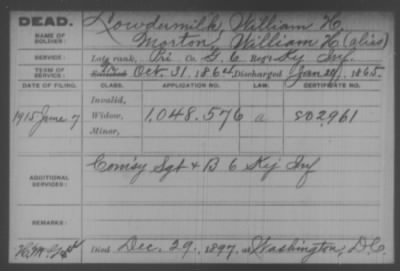 DEAD.
NAME OF SOLDIER:
Lowdermilk, William H.
Morton, William H (alias)
SERVICE:
Late rank, Pri Co. G. 6 Reg't Ky Inf.
TERM OF SERVICE:
Enlisted Oct. 31, 1864 Discharged 1865.
DATE OF FILING. CLASS. APPLICATION NO. LAW. CERTIFICATE NO.
Invalid,
1915 June 7 Widow, 1.048.576 a 802961
Minor,
ADDITIONAL SERVICES:
Com'sy Sgt & B 6 Ky Inf
REMARKS:
Died Dec. 29, 1897, at Washington, D.C.